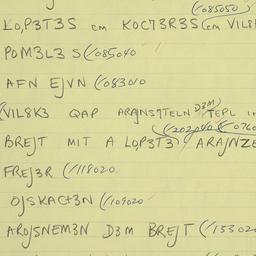 (085050)
LOP3T3S cm KOC73R3S (cm VIL8
POM3L3 S (085040
AFN EJVN (083010
(VIL8K3 QAP ARAJNS9TELN D3M TEPL
(202040) (0760
BREJT MIT A LOP3T3) ARAJNZE
FREJ3R (118020
OJSKACT3N (109020
AROJSNEM3N D3M BREJT (153020